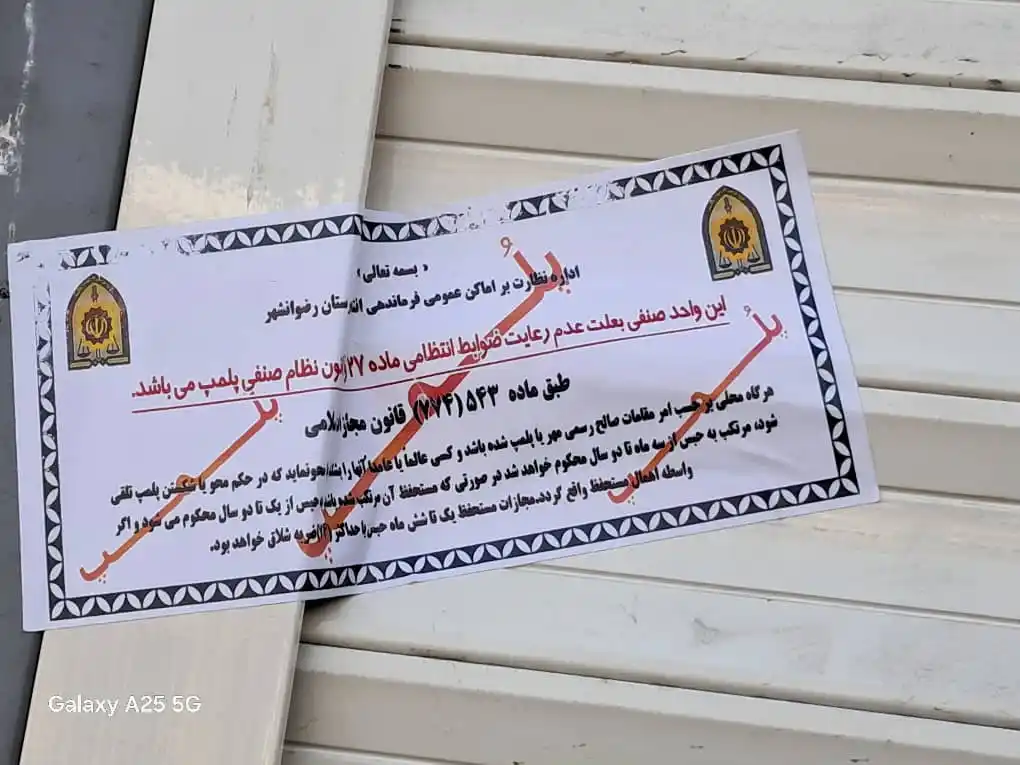 « بسمه تعالی »
اداره نظارت بر اماکن عمومی فرماندهی انتظامی شهرستان رضوانشهر
این واحد صنفی بعلت عدم رعایت ضوابط انتظامی ماده ۲۷ قانون نظام صنفی پلمپ می باشد.
طبق ماده ۵۴۳ (۷۷۴) قانون مجازات اسلامی
هر گاه محلی بر حسب امر مقامات صالح رسمی مهر یا پلمپ شده باشد و کسی عالماً یا عامداً آنها را بشکند یا محو نماید که در حکم محو یا شکستن پلمپ تلقی
شود، مرتکب به حبس از سه ماه تا دو سال محکوم خواهد شد در صورتی که مستحفظ آن مرتکب شده باشد به حبس از یک تا دو سال محکوم می شود و اگر
واسطه اهمال مستحفظ واقع گردد. مجازات مستحفظ یک تا شش ماه حبس یا حداکثر (۷۴) ضربه شلاق خواهد بود.
پلمپ
پلمپ
پلمپ
Galaxy A25 5G